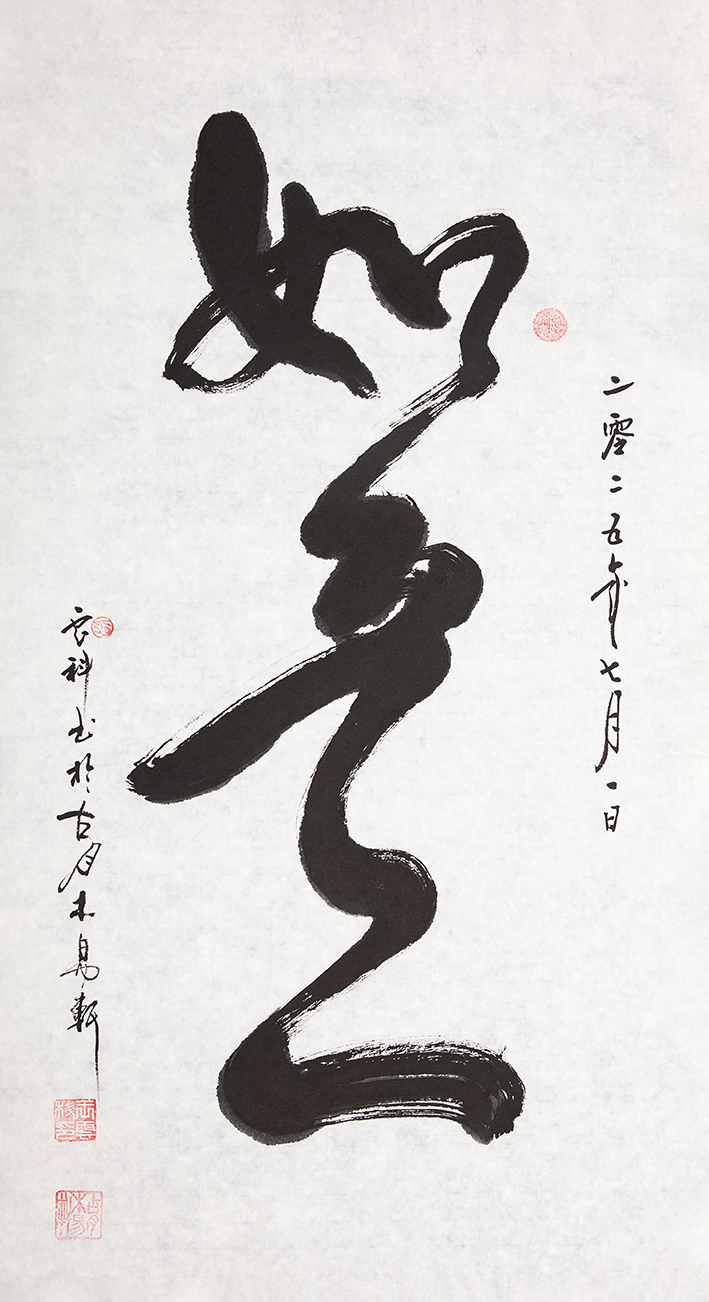 二零二五年七月一日
如是
云科书於古月木易軒